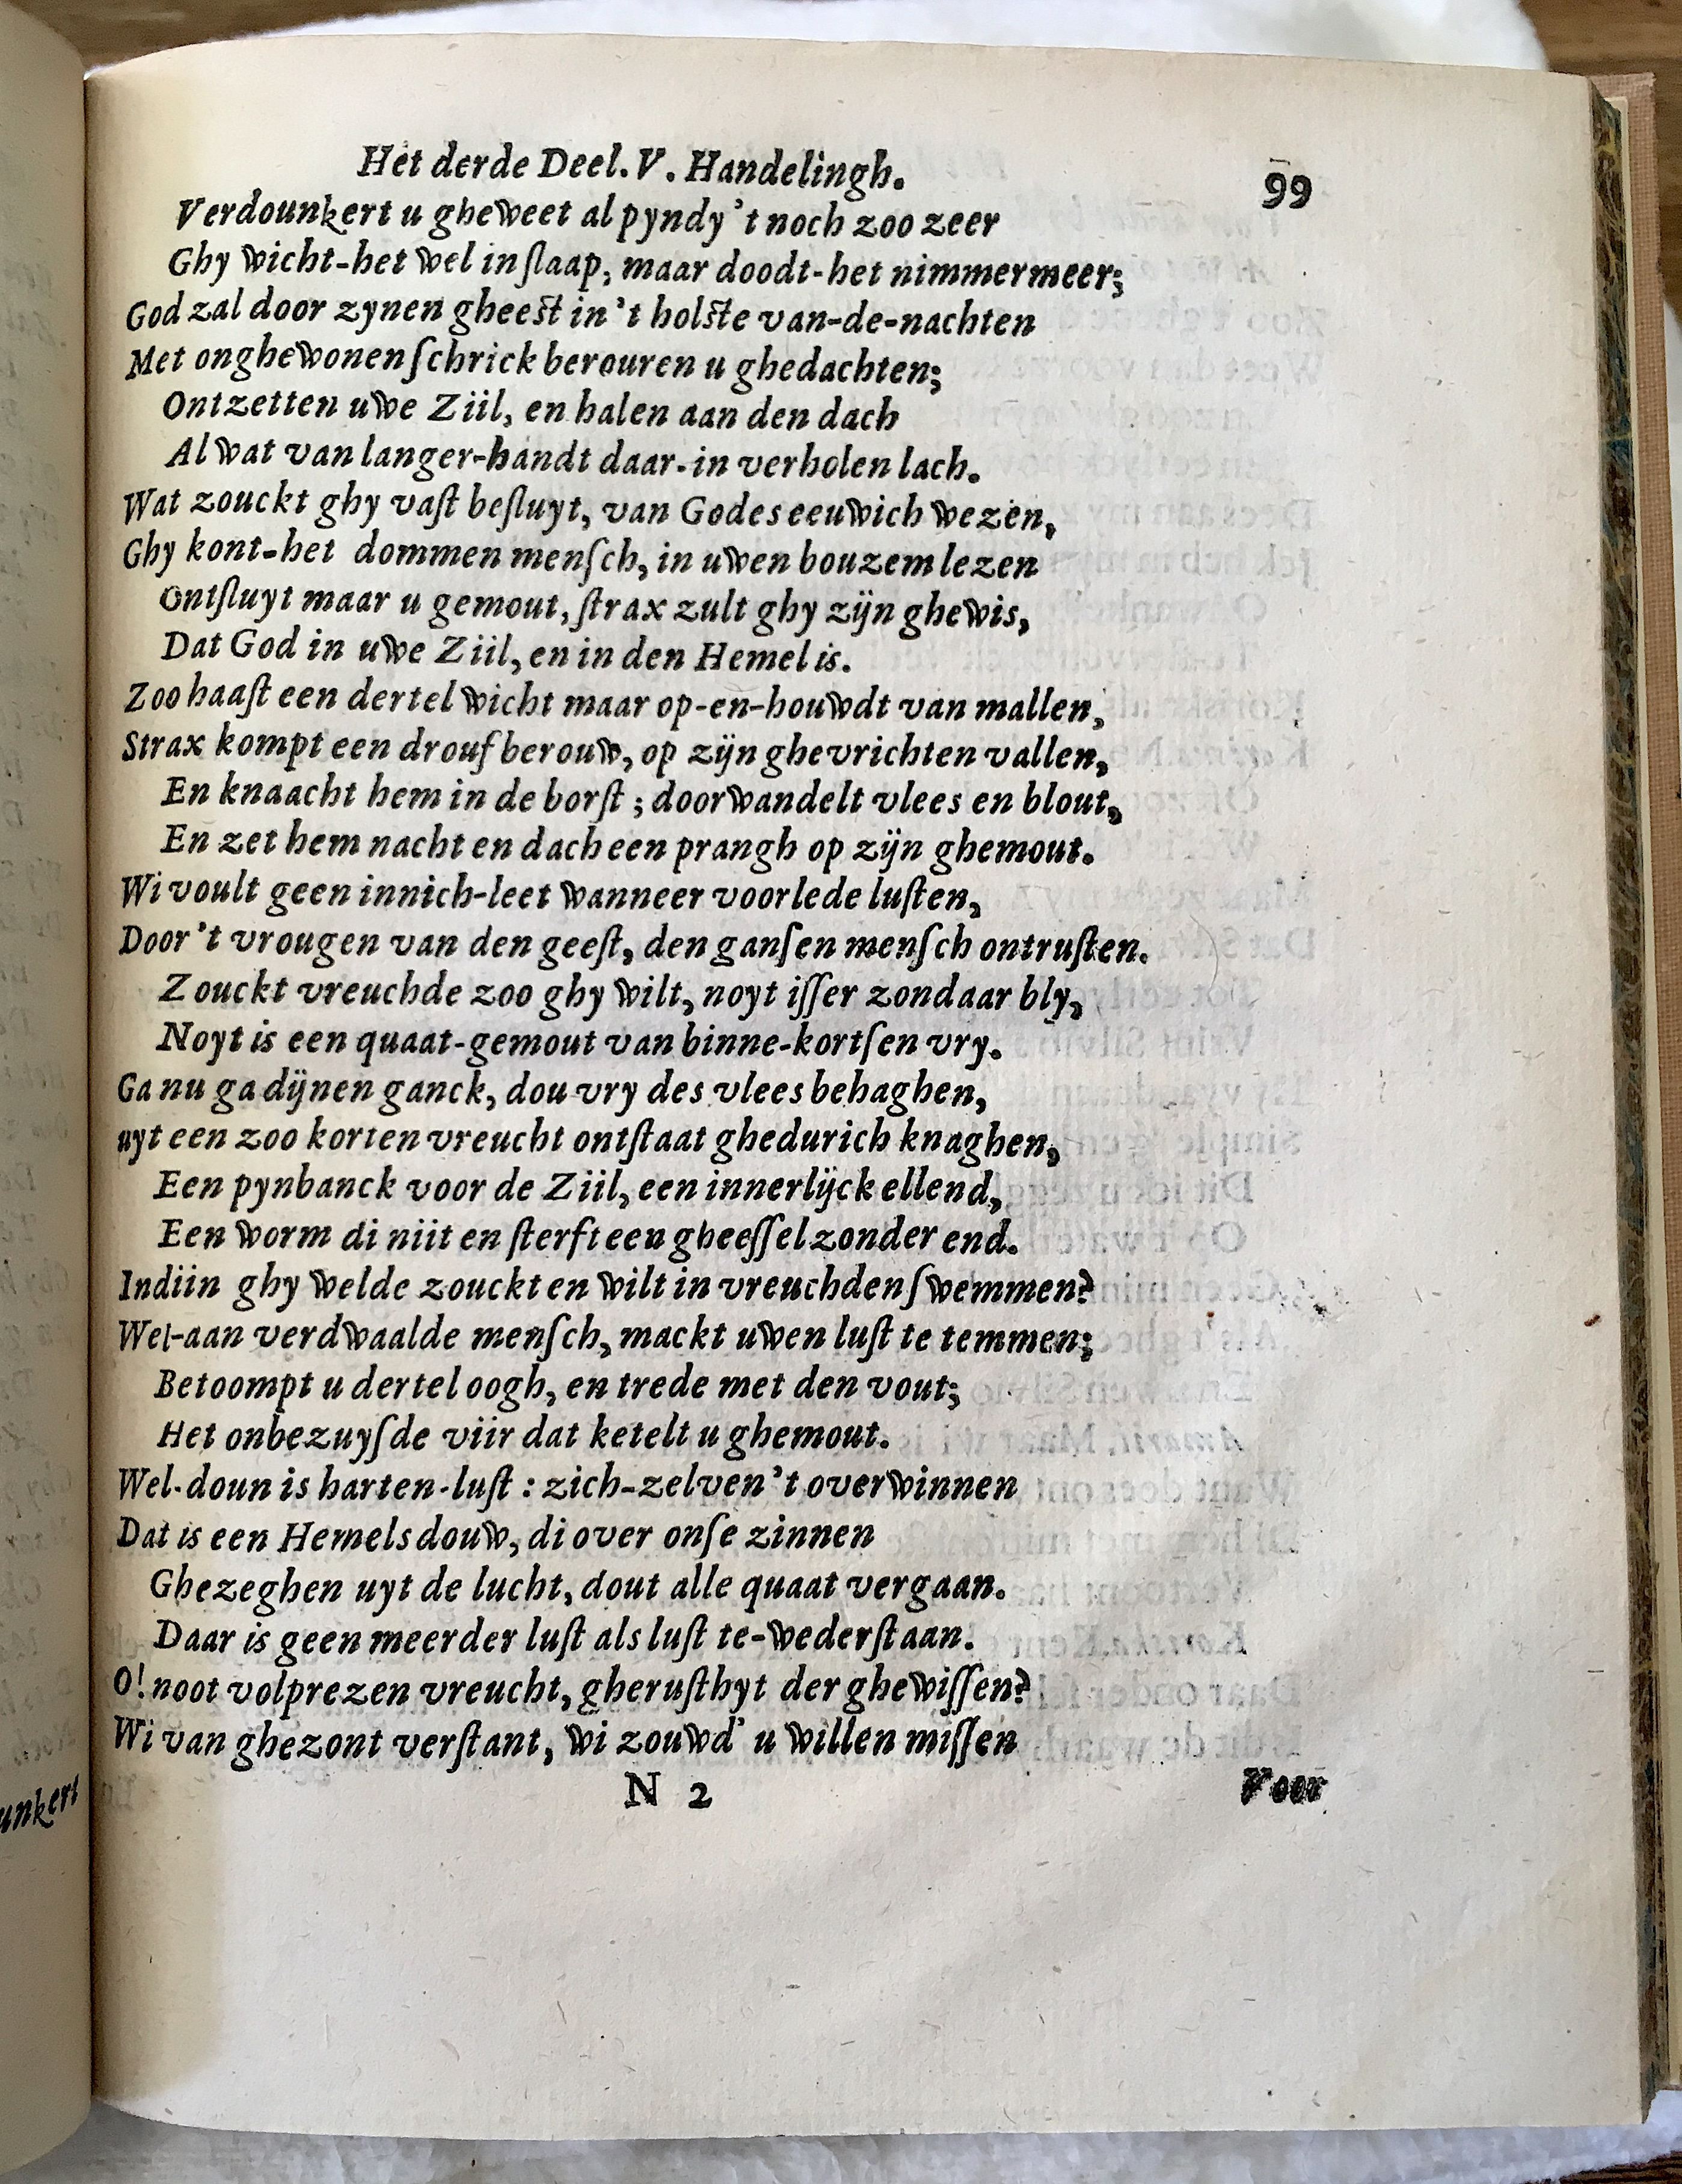 Het derde Deel. V. Handelingh. 99
Verdounkert u gheweet al pyndy't noch zoo zeer
Ghy wicht-het wel in ſlaap, maar doodt-het nimmermeer;
God zal door zynen gheest in't holste van-de-nachten
Met onghewonen ſchrick berouren u ghedachten;
Ontzetten uwe Ziil, en halen aan den dach
Al wat van langer-handt daar-in verholen lach.
Wat zouckt ghy vaſt beſluyt, van Godes eeuwich wezen,
Ghy kont-het dommen menſch, in uwen bouzem lezen
Ontſluyt maar u gemout, ſtrax zult ghy zijn ghewis,
Dat God in uwe Ziil, en in den Hemel is.
Zoo haaſt een dertel wicht maar op-en-houwdt van mallen,
Strax kompt een drouf berouw, op zijn ghevrichten vallen,
En knaacht hem in de borſt; doorwandelt vlees en blout,
En zet hem nacht en dach een prangh op zijn ghemout.
Wi voult geen innich-leet wanneer voorlede luſten,
Door't vrougen van den geeſt, den ganſen menſch ontruſten.
Zouckt vreuchde zoo ghy wilt, noyt iſſer zondaar bly,
Noyt is een quaat-gemout van binne-kortſen vry.
Ga nu ga dijnen ganck, dou vry des vlees behaghen,
uyt een zoo korten vreucht ontſtaat ghedurich knaghen,
Een pynbanck voor de Ziil, een innerlijck ellend,
Een worm di niit en ſterft een gheeſſel zonder end.
Indiin ghy welde zouckt en wilt in vreuchden ſwemmen?
Wel-aan verdwaalde menſch, mackt uwen luſt te temmen;
Betoompt u dertel oogh, en trede met den vout;
Het onbezuyſde viir dat ketelt u ghemout.
Wel-doun is harten-luſt: zich-zelven't overwinnen
Dat is een Hemels douw, di over onſe zinnen
Ghezeghen uyt de lucht, dout alle quaat vergaan.
Daar is geen meerder luſt als luſt te-wederſtaan.
O! noot volprezen vreucht, gheruſthyt der ghewiſſen?
Wi van ghezont verſtant, wi zouwd' u willen miſſen
N 2 Voor
unkert